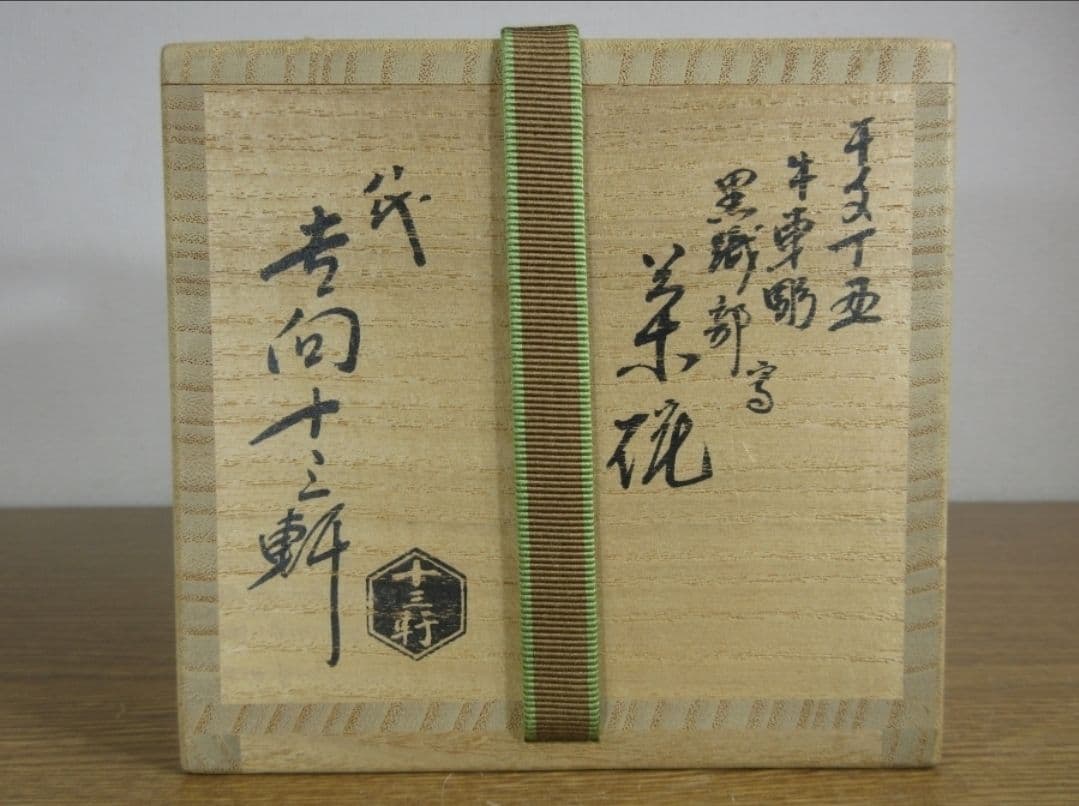 干支丁丑
牛車彫
黒織部写
茶碗
代
吉向十三軒
十三軒